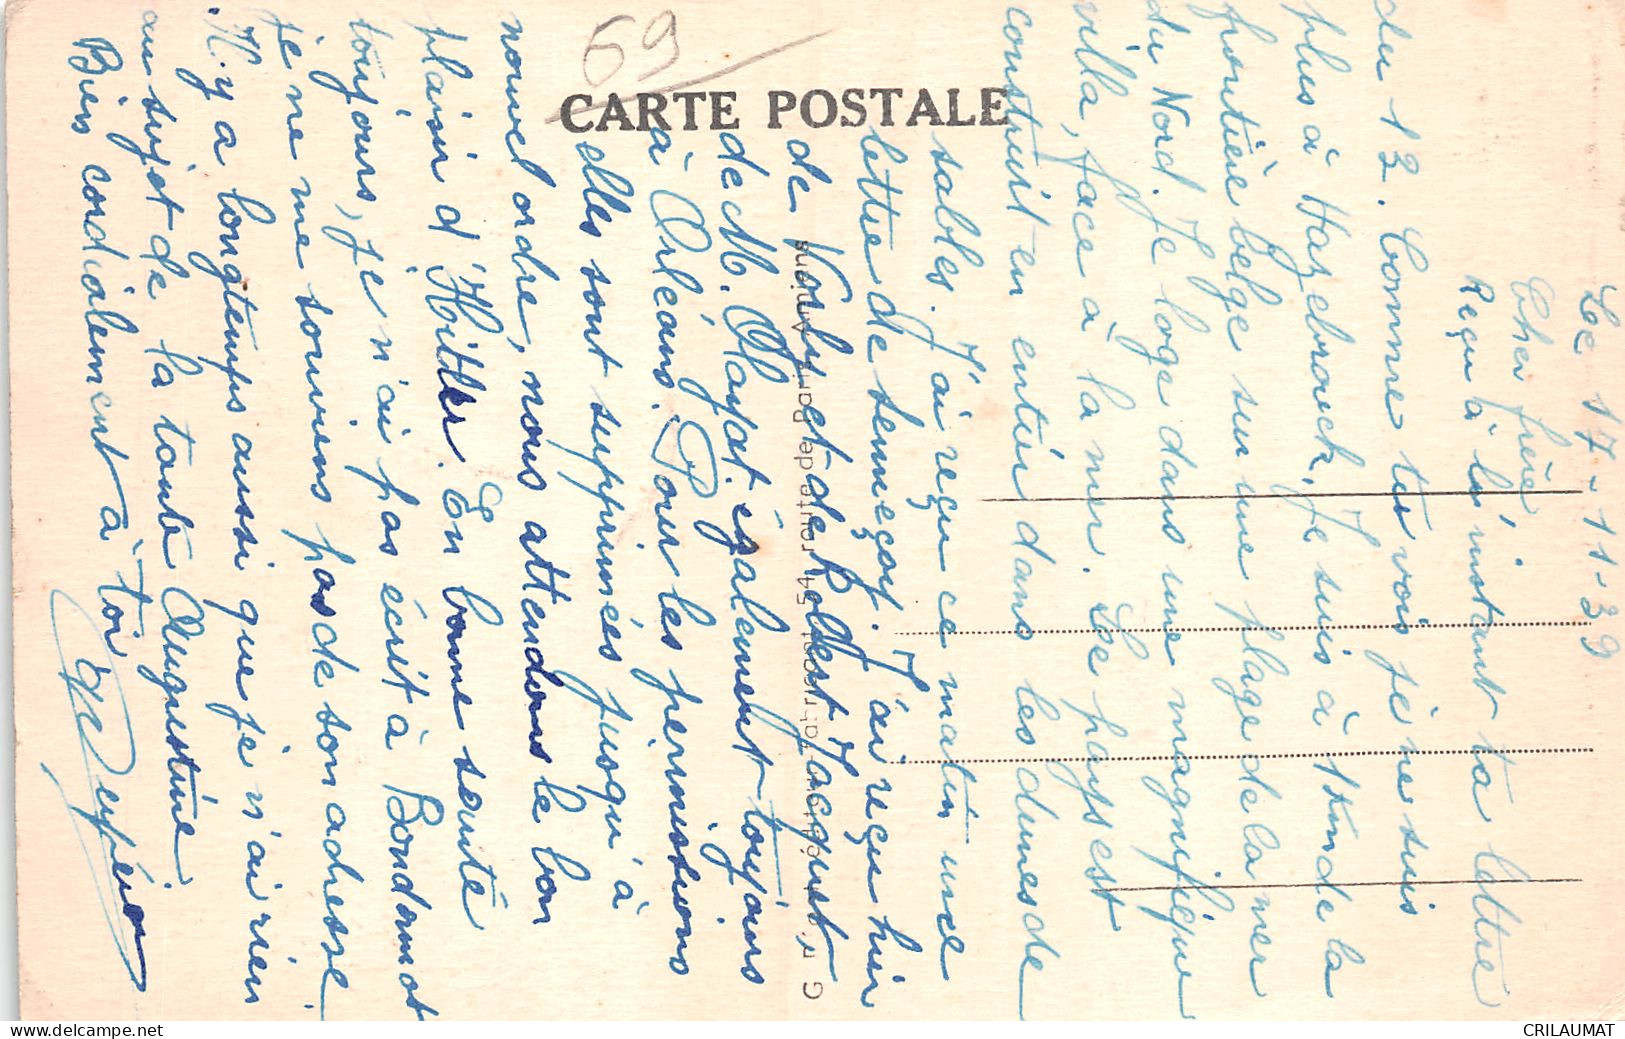 69
CARTE POSTALE
Le 17-11-39
Cher frère
Reçu à l'instant ta lettre
du 12. Comme tu vois je ne suis
plus à Hazebrouck. Je suis à 1km de la
frontière belge sur une plage de la mer
du Nord. Je loge dans une magnifique
villa, face à la mer. Le pays est
construit en entier dans les dunes de
sables. J'ai reçu ce matin une
lettre de Semeçay. J'ai reçu hier
de Vorly et de Robert Jacquet,
de M. également toujours
à Orléans. Pour les permissions
elles sont supprimées jusqu'à
nouvel ordre, nous attendons le bon
plaisir d'Hitler. En bonne santé
toujours, je n'ai pas écrit à Bondamot
je ne me souviens pas de son adresse.
Il y a longtemps aussi que je n'ai rien
au sujet de la tante Augustine
Bien cordialement à toi
54, route de Paris, Amiens
CRILAUMAT